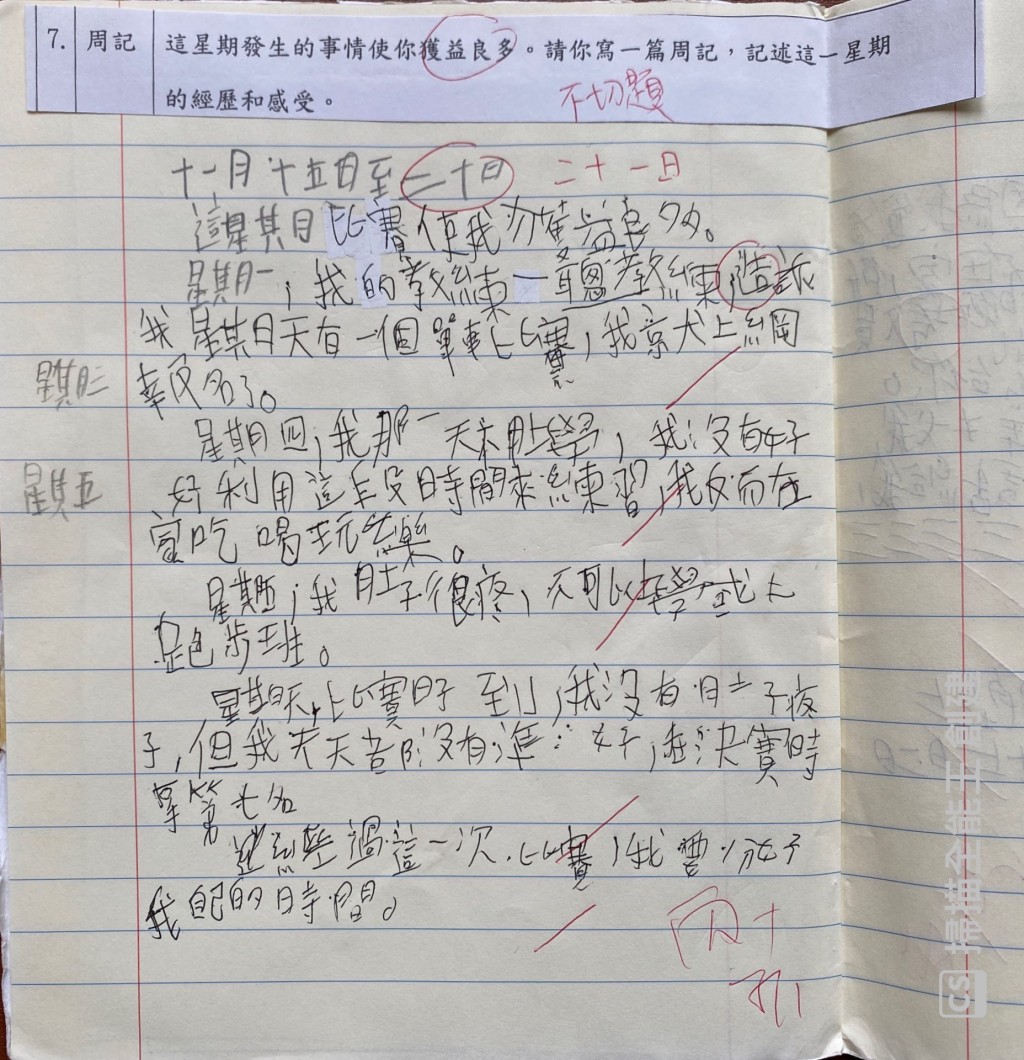 7. 周記 這星期發生的事情使你獲益良多。請你寫一篇周記，記述這一星期
的經歷和感受。
不切題
十一月十五日至二十日 二十一日
這星其日比賽使我獲益良多。
星期一，我的教練聽教練造訴
我星其日天有一個單車比賽，我京犬上網
星其三 幸反名了。
星期四，我那一天未上學，我沒有好
星其五 好利用這段時間來練習，我反而在
家吃喝玩樂。
星期五，我肚子很疼，不可以上學或上
跑步班。
星期天，比賽日子到，我沒有肚子疼
子，但我天沒有準好，決賽時
拿第七名
經過這一次比賽，我要分好
我自己的時間。
丙+
CS 掃描全能王 創建